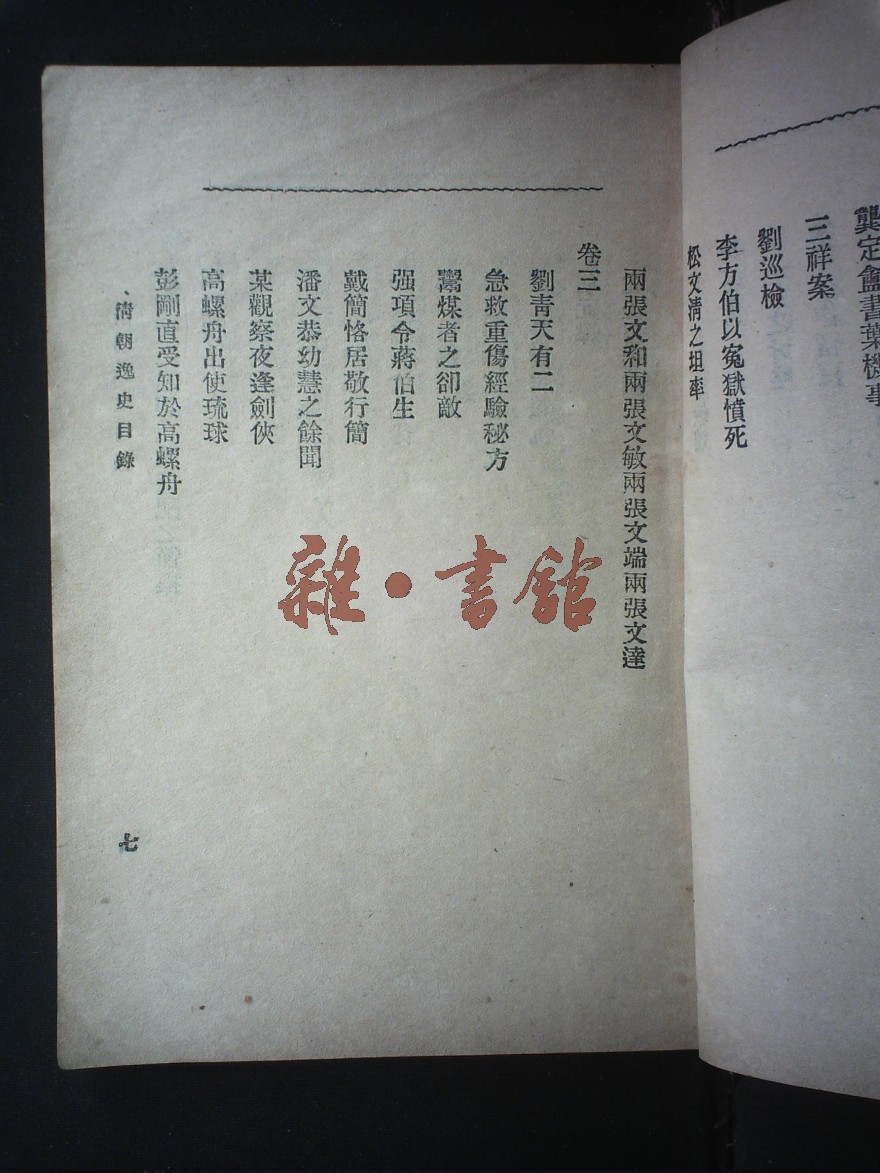 龔定盦書葉機事
三祥案
劉巡檢
李方伯以冤獄憤死
松文清之坦率
兩張文和兩張文敏兩張文端兩張文達
卷三
劉青天有二
急救重傷經驗秘方
鬻煤者之卻敵
强項令蔣伯生
戴簡恪居敬行簡
潘文恭幼慧之餘聞
某觀察夜逢劍俠
高螺舟出使琉球
彭剛直受知於高螺舟
清朝逸史目錄
七
雜·書館